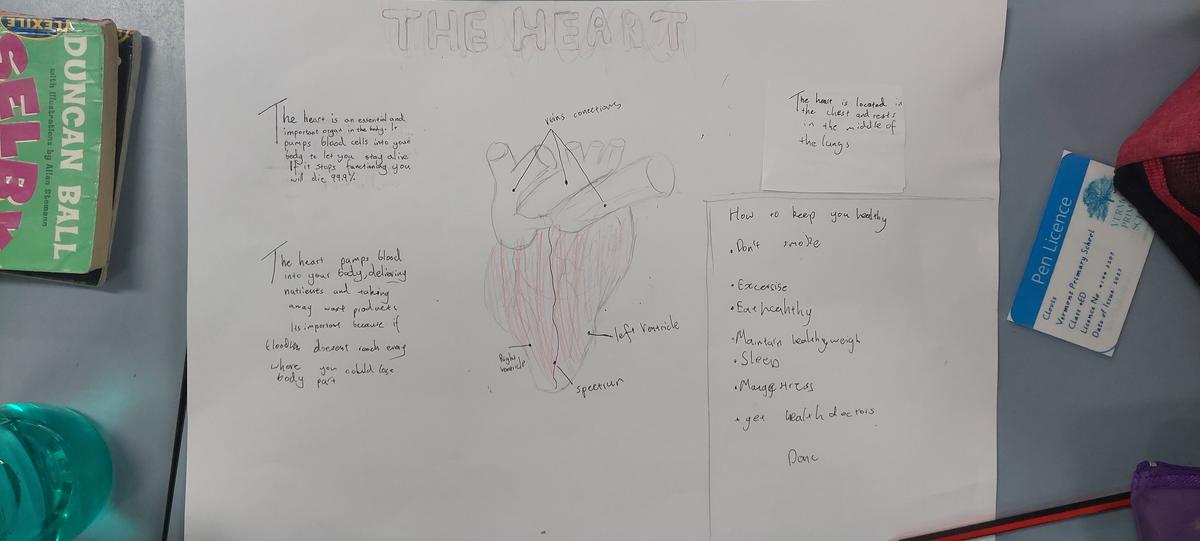 THE HEART
The heart is an essential and
important organ in the body. It
pumps blood cells into your
body to let you stay alive
If it stops functioning you
will die 99.9%
The heart pumps blood
into your body, delivering
nutrients and taking
away wast products
Its important because if
blood doesent reach every
where you could lose
body part
veins conections
Right
ventricle
left Ventricle
spectrum
The heart is located in
the chest and rests
in the middle of
the lungs
How to keep you healthy
• Don't smoke
• Excersise
• Eat healthy
• Maintain healthy weigh
• Sleep
• Mange stress
• get health doctors
Done
FLEXILE
SELBY
DUNCAN BALL
with illustrations by Allan Stomann
Pen Licence
Clovis
Vermont Primary School
Class
Licence No
Date of Issue
VERM
PRIM
SC